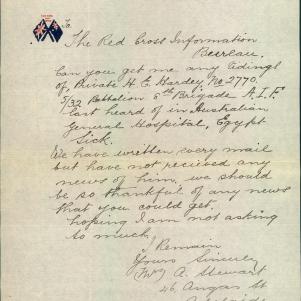 To,
The Red Cross Information
Bureau.
Can you get me any tidings
of, Private H. E. Hardey, No 2770.
5/32 Battalion 8th Brigade A.I.F.
last heard of in Australian
General Hospital, Egypt
Sick.
We have written every mail
but have not received any
news of him, we should
be so thankful of any news
that you could get,
hoping I am not asking
to much,
I Remain
Yours Sincerely
A. Stewart
46 Angas St
Adelaide